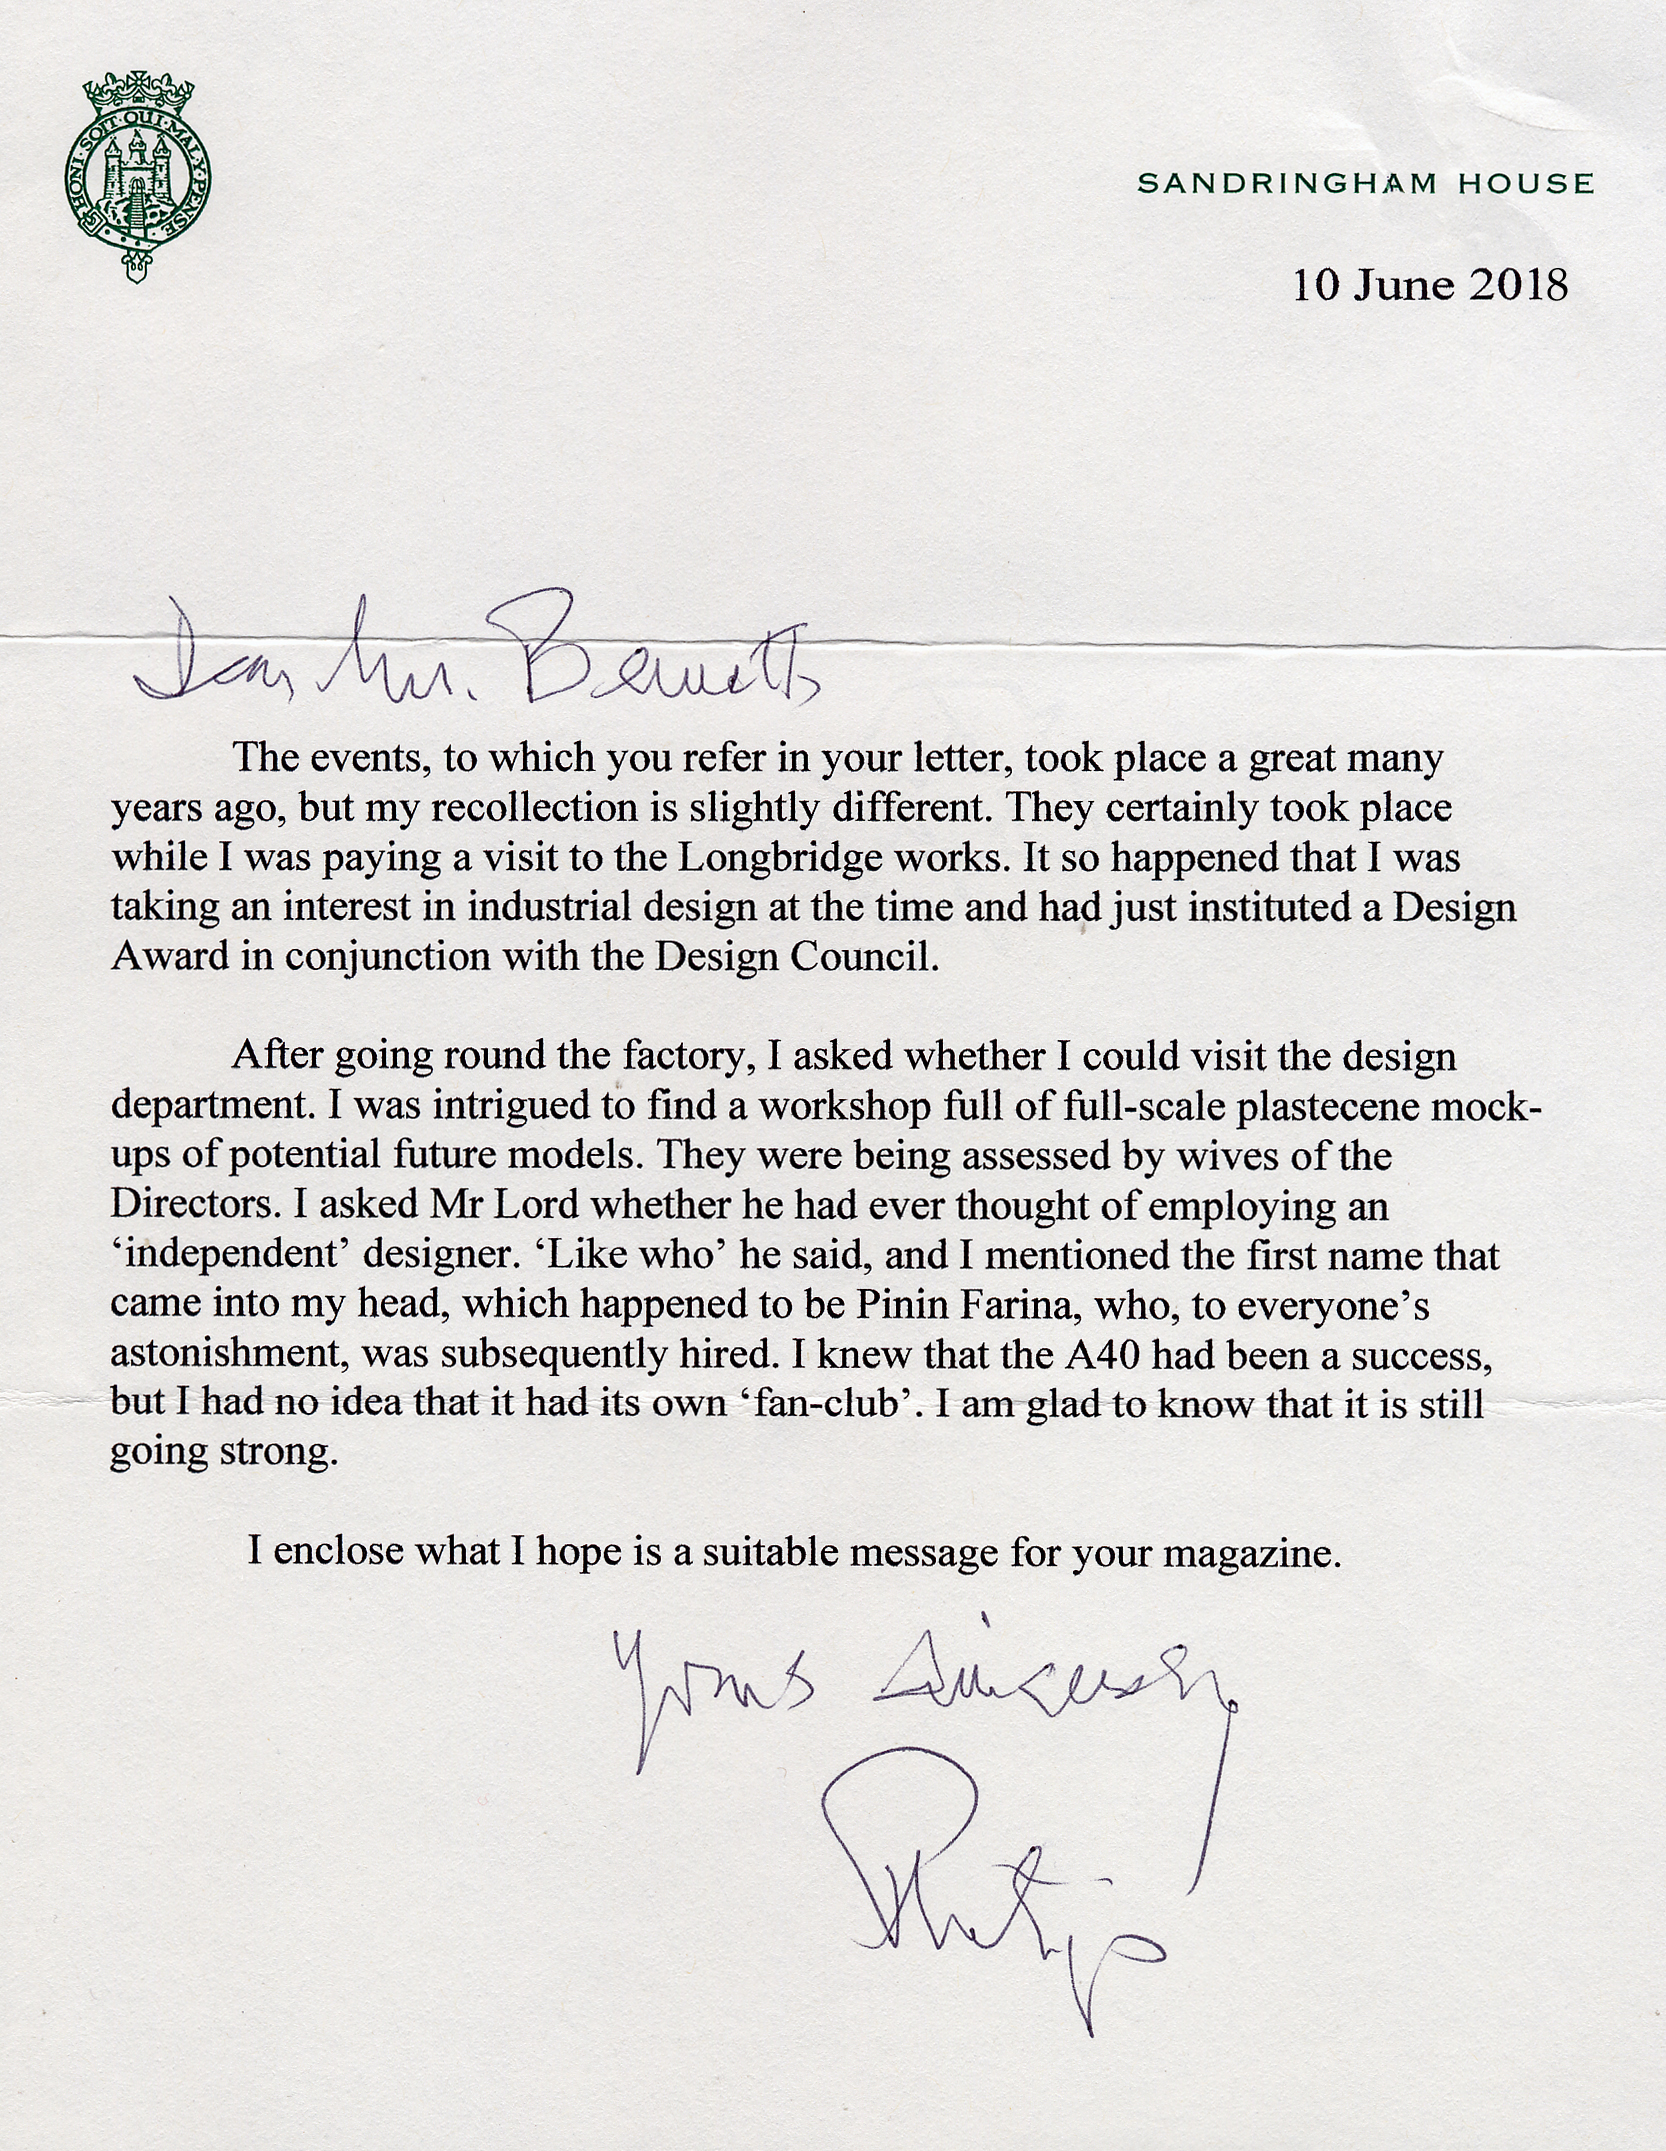 HONI · SOIT · QUI · MAL · Y · PENSE
SANDRINGHAM HOUSE
10 June 2018
Dear Mr. Bennetts
The events, to which you refer in your letter, took place a great many
years ago, but my recollection is slightly different. They certainly took place
while I was paying a visit to the Longbridge works. It so happened that I was
taking an interest in industrial design at the time and had just instituted a Design
Award in conjunction with the Design Council.
After going round the factory, I asked whether I could visit the design
department. I was intrigued to find a workshop full of full-scale plastecene mock-
ups of potential future models. They were being assessed by wives of the
Directors. I asked Mr Lord whether he had ever thought of employing an
‘independent’ designer. ‘Like who’ he said, and I mentioned the first name that
came into my head, which happened to be Pinin Farina, who, to everyone’s
astonishment, was subsequently hired. I knew that the A40 had been a success,
but I had no idea that it had its own ‘fan-club’. I am glad to know that it is still
going strong.
I enclose what I hope is a suitable message for your magazine.
Yours sincerely
Philip